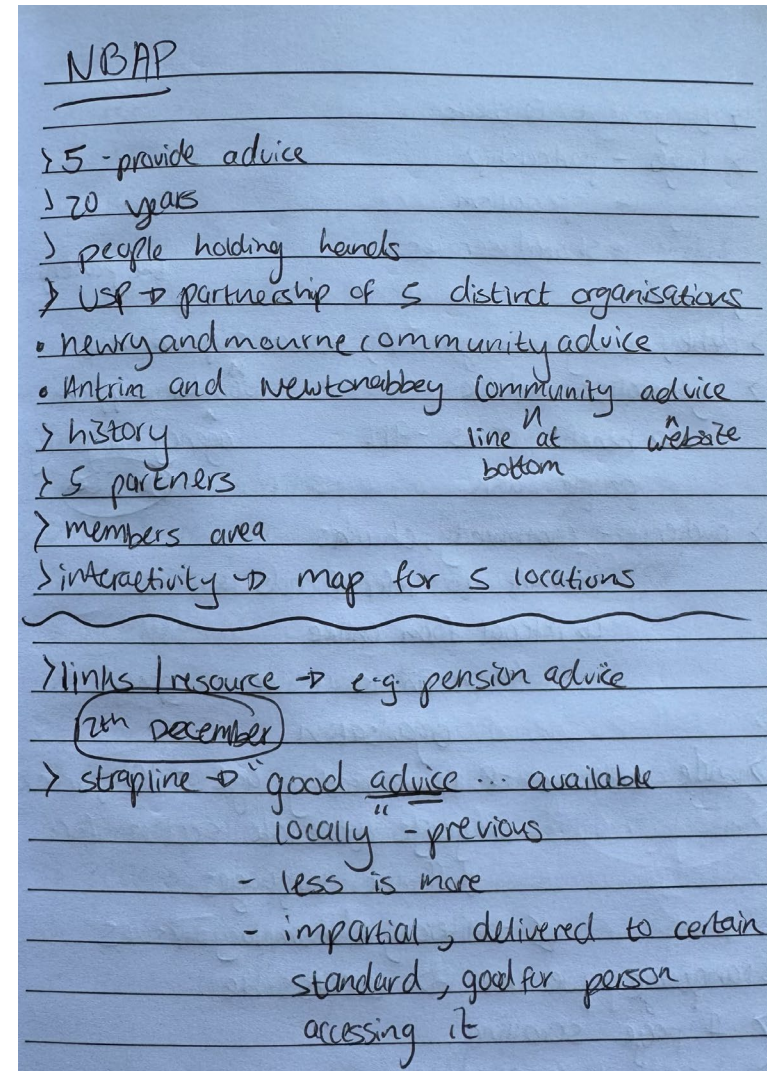 NBAP
> 5 - provide advice
> 20 years
> people holding hands
> USP → partnership of 5 distinct organisations
• newryandmournecommunityadvice
• Antrim and Newtonabbey Community advice
> history
line at website
bottom
> 5 partners
> members area
> interactivity → map for 5 locations
> links / resource → e.g. pension advice
12th December
> strapline → "good advice ... available
locally" - previous
- less is more
- impartial, delivered to certain
standard, good for person
accessing it